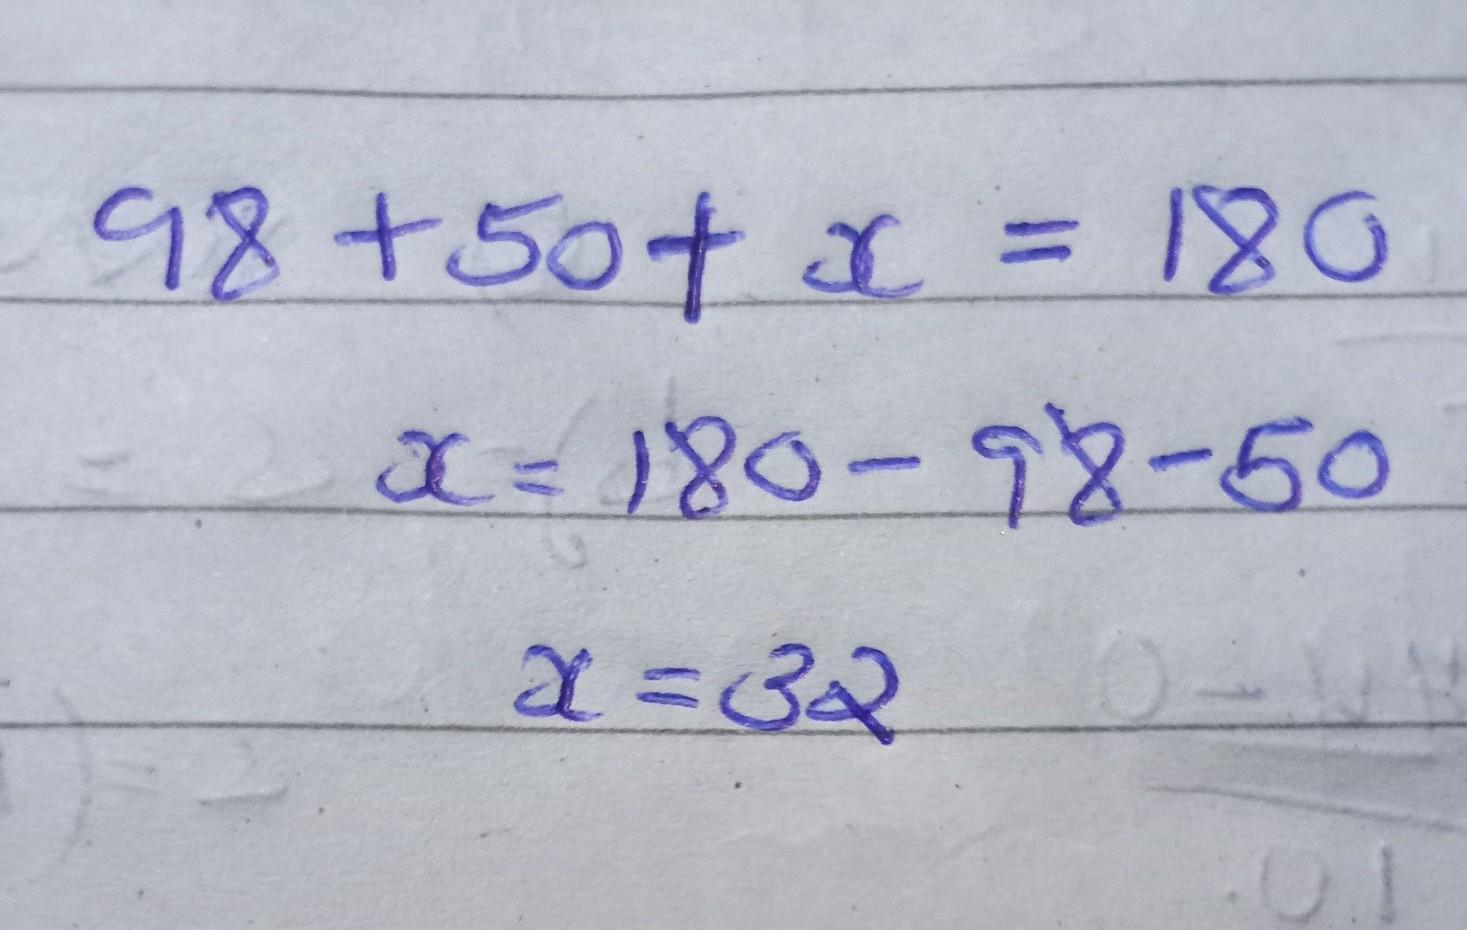 98 + 50 + x = 180
x = 180 - 98 - 50
x = 32